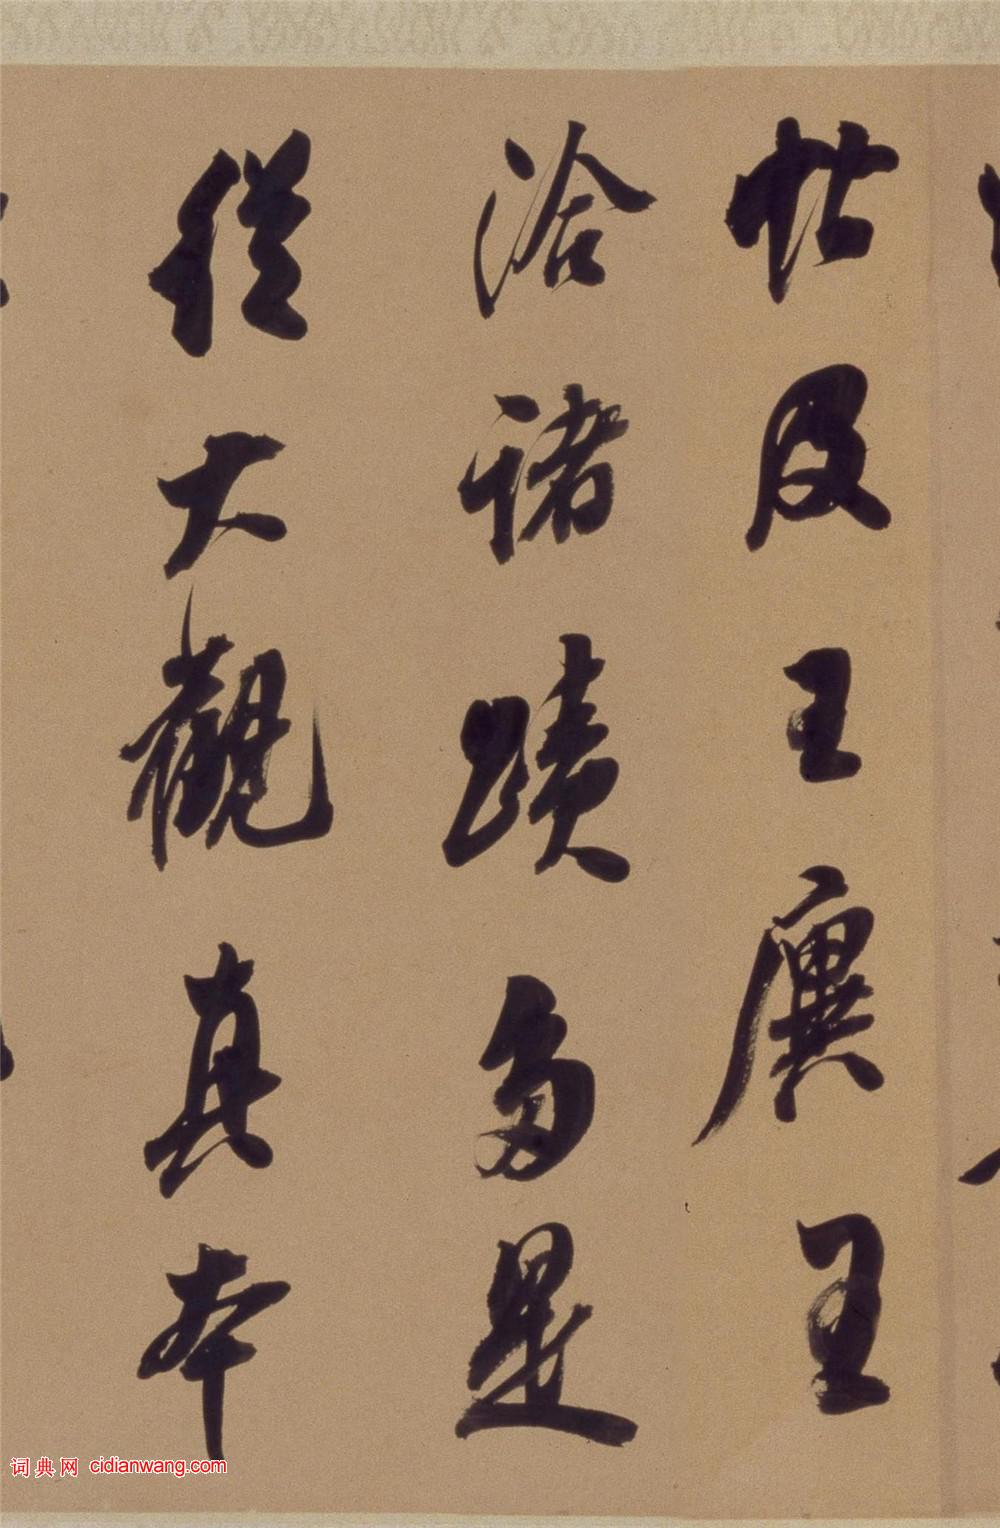 帖及王廙王
洽諸蹟多是
從大觀真本
词典网 cidianwang.com